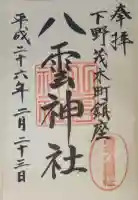 奉拝
下野茂木町鎮座
八雲神社
平成二十六年二月二十三日